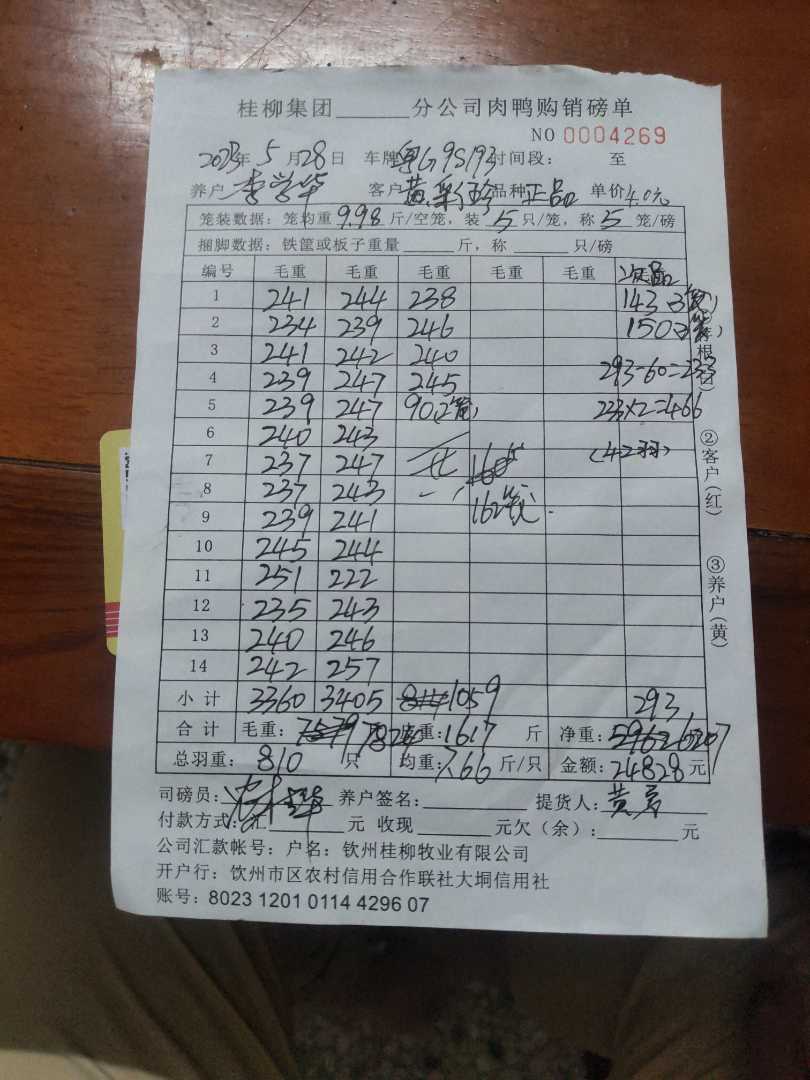 桂柳集团______分公司肉鸭购销磅单
NO 0004269
2023年5月28日 车牌 粤G9S193 时间段: 至
养户 李学华 客户 黄彩珍 品种 正品 单价 4.0元
笼装数据: 笼均重 9.98 斤/空笼, 装 5 只/笼, 称 5 笼/磅
捆脚数据: 铁筐或板子重量______斤, 称______只/磅
编号 毛重 毛重 毛重 毛重 毛重 次品
1 241 244 238 143 3(笼)
2 234 239 246 150 3(笼)
3 241 242 240
4 239 247 245 293-60=233
5 239 247 90(2笼) 233×2=466
6 240 243
7 237 247 (42羽)
8 237 243
9 239 241 162笼
10 245 244
11 251 222
12 235 243
13 240 246
14 242 257
小计 3360 3405 1059 293
合计 毛重: 皮重: 1617 斤 净重: 6207
总羽重: 810 只 均重: 7.66 斤/只 金额: 24828 元
司磅员: 养户签名:________ 提货人:
付款方式: 汇________元 收现________元欠(余): ________元
公司汇款帐号: 户名: 钦州桂柳牧业有限公司
开户行: 钦州市区农村信用合作联社大垌信用社
账号: 8023 1201 0114 4296 07
②客户(红)
③养户(黄)